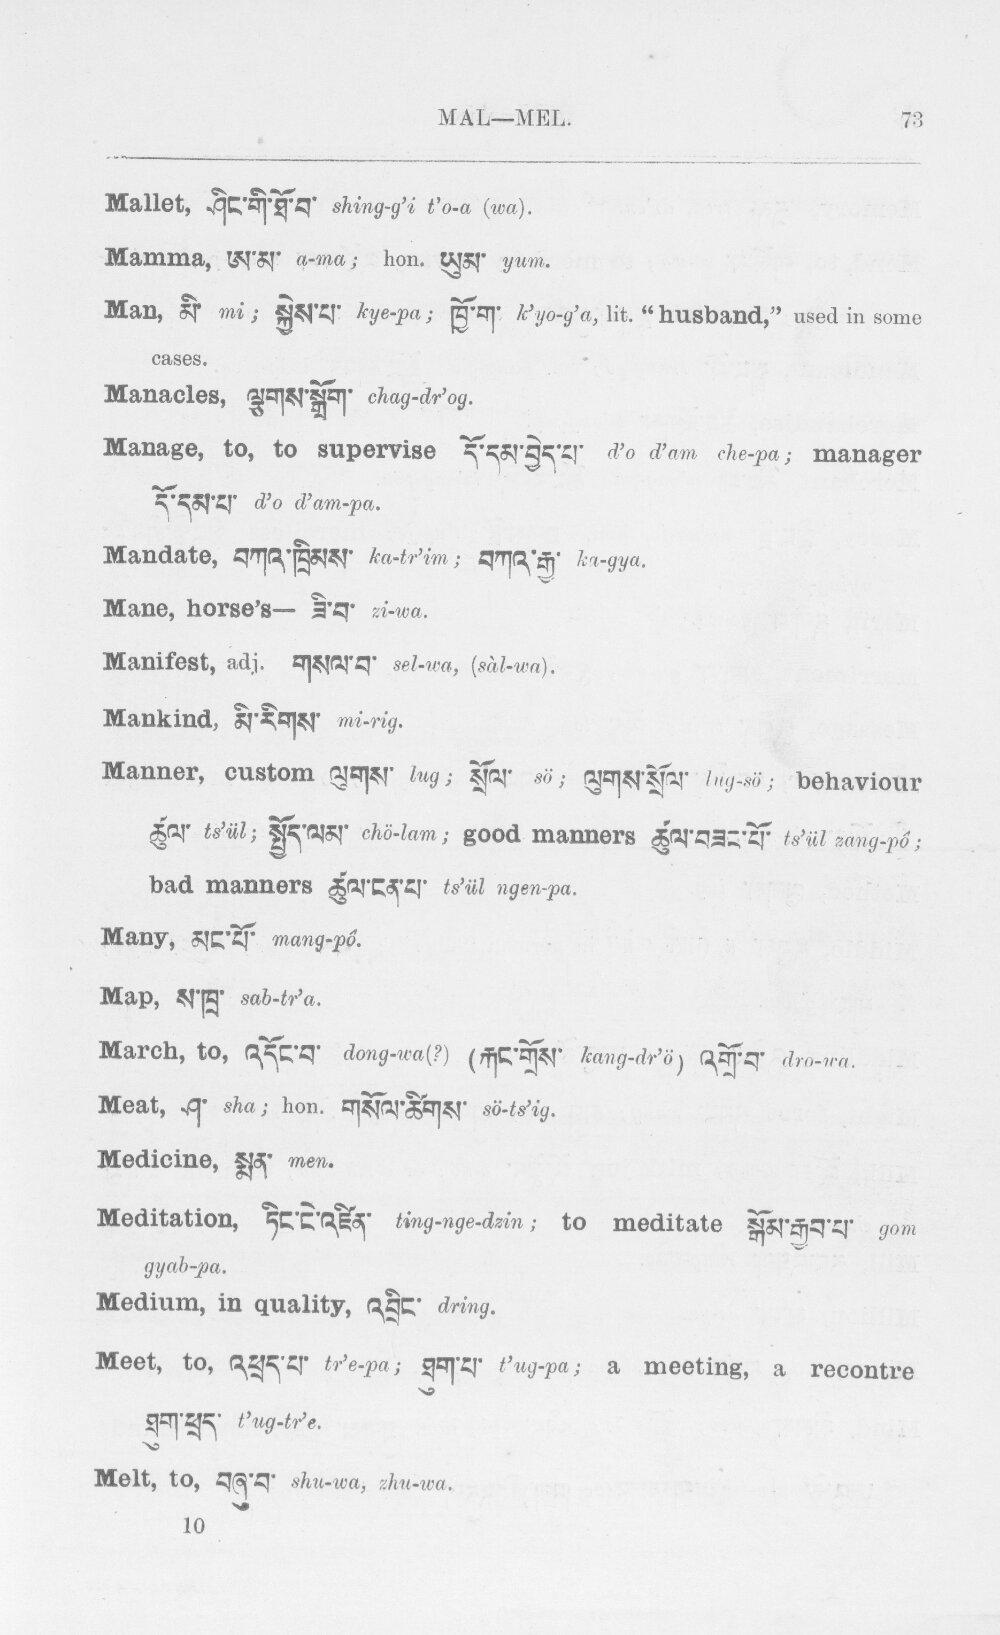 MAL—MEL. 73
Mallet, ཤིང་གི་ཐོ་བ་ shing-g'i t'o-a (wa).
Mamma, ཨ་མ་ a-ma; hon. ཡུམ་ yum.
Man, མི་ mi; སྐྱེས་པ་ kye-pa; ཁྱོ་ག་ k'yo-g'a, lit. "husband," used in some
cases.
Manacles, ལྕགས་སྒྲོག་ chag-dr'og.
Manage, to, to supervise དོ་དམ་བྱེད་པ་ d'o d'am che-pa; manager
དོ་དམ་པ་ d'o d'am-pa.
Mandate, བཀའ་ཁྲིམས་ ka-tr'im; བཀའ་རྒྱ་ ka-gya.
Mane, horse's— ཟི་བ་ zi-wa.
Manifest, adj. གསལ་བ་ sel-wa, (sàl-wa).
Mankind, མི་རིགས་ mi-rig.
Manner, custom ལུགས་ lug; སྲོལ་ sö; ལུགས་སྲོལ་ lug-sö; behaviour
ཚུལ་ ts'ül; སྤྱོད་ལམ་ chö-lam; good manners ཚུལ་བཟང་པོ་ ts'ül zang-pó;
bad manners ཚུལ་ངན་པ་ ts'ül ngen-pa.
Many, མང་པོ་ mang-pó.
Map, ས་ཁྲ་ sab-tr'a.
March, to, འདོང་བ་ dong-wa(?) (རྐང་གྲོས་ kang-dr'ö) འགྲོ་བ་ dro-wa.
Meat, ཤ་ sha; hon. གསོལ་ཚིགས་ sö-ts'ig.
Medicine, སྨན་ men.
Meditation, ཏིང་ངེ་འཛིན་ ting-nge-dzin; to meditate སྒོམ་རྒྱབ་པ་ gom
gyab-pa.
Medium, in quality, འབྲིང་ dring.
Meet, to, འཕྲད་པ་ tr'e-pa; ཐུག་པ་ t'ug-pa; a meeting, a recontre
ཐུག་ཕྲད་ t'ug-tr'e.
Melt, to, བཞུ་བ་ shu-wa, zhu-wa.
10